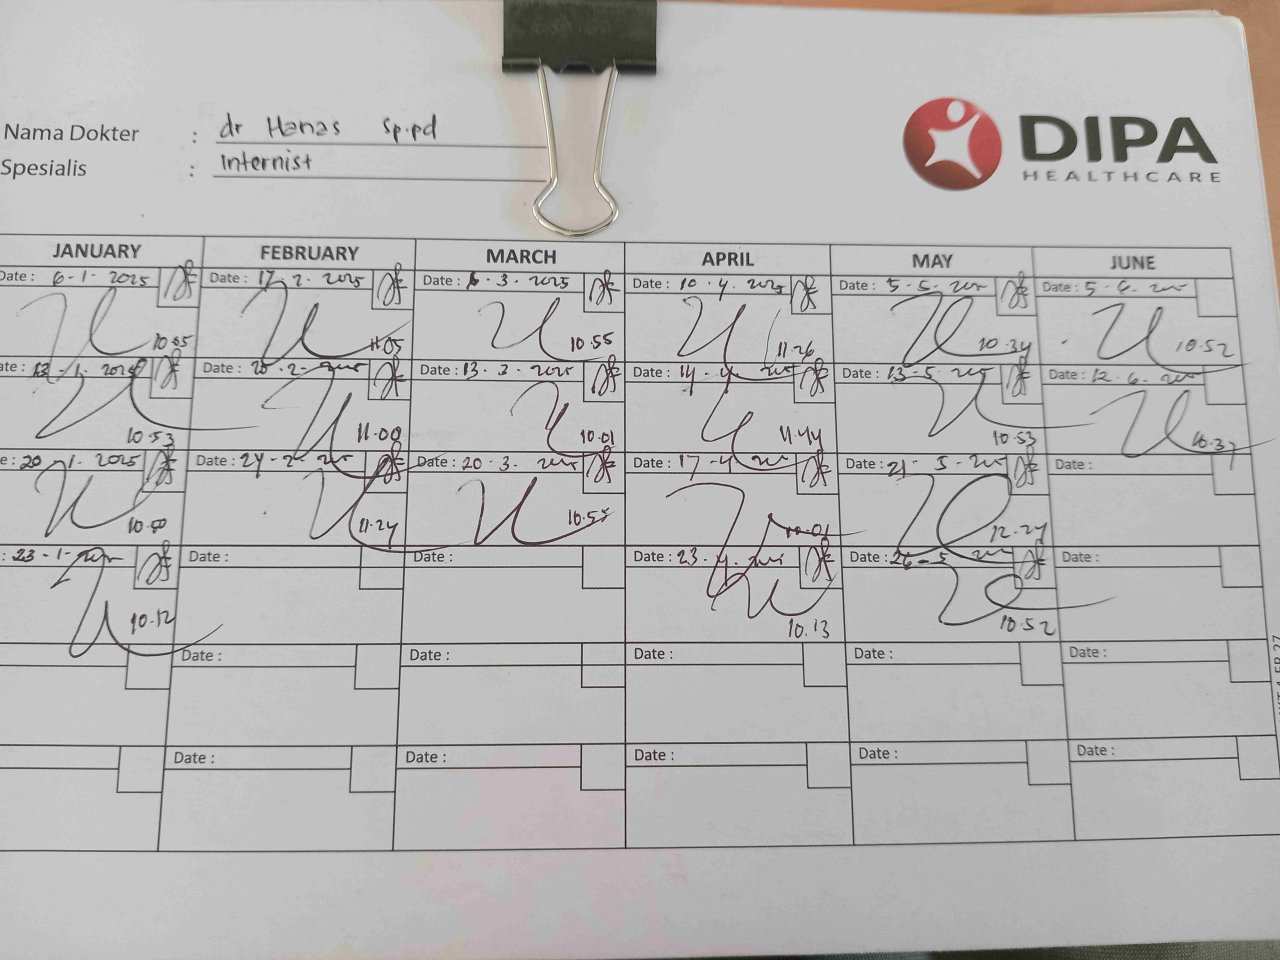 Nama Dokter : dr Hanas Sp.pd
Spesialis : Internist
DIPA
HEALTHCARE
JANUARY FEBRUARY MARCH APRIL MAY JUNE
Date : 6-1-2025 Date : 17-2-2025 Date : 6-3-2025 Date : 10-4-2025 Date : 5-5- Date : 5-6-
10.55 11.05 10.55 11.26 10.34 10.52
ate : 13-1-2025 Date : 20-2- Date : 13-3- Date : 14-4- Date : 13-5- Date : 12-6-
10.53 11.00 10.01 11.44 10.53 10.37
e : 20-1-2025 Date : 24-2- Date : 20-3- Date : 17-4- Date : 21-5- Date :
10.50 11.24 10.55 10.01 12.24
: 23-1- Date : Date : Date : 23-4- Date : 26-5- Date :
10.12 10.13 10.52
Date : Date : Date : Date : Date :
Date : Date : Date : Date : Date :